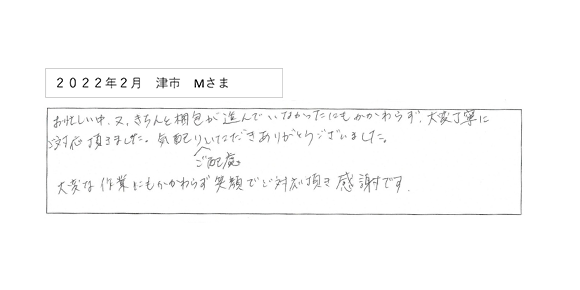 ２０２２年２月　津市　Mさま
お忙しい中、又、きちんと梱包が進んでいなかったにもかかわらず、大変丁寧に
対応頂きました。気配りいただきありがとうございました。
ご配慮
大変な作業にもかかわらず笑顔でご対応頂き感謝です。